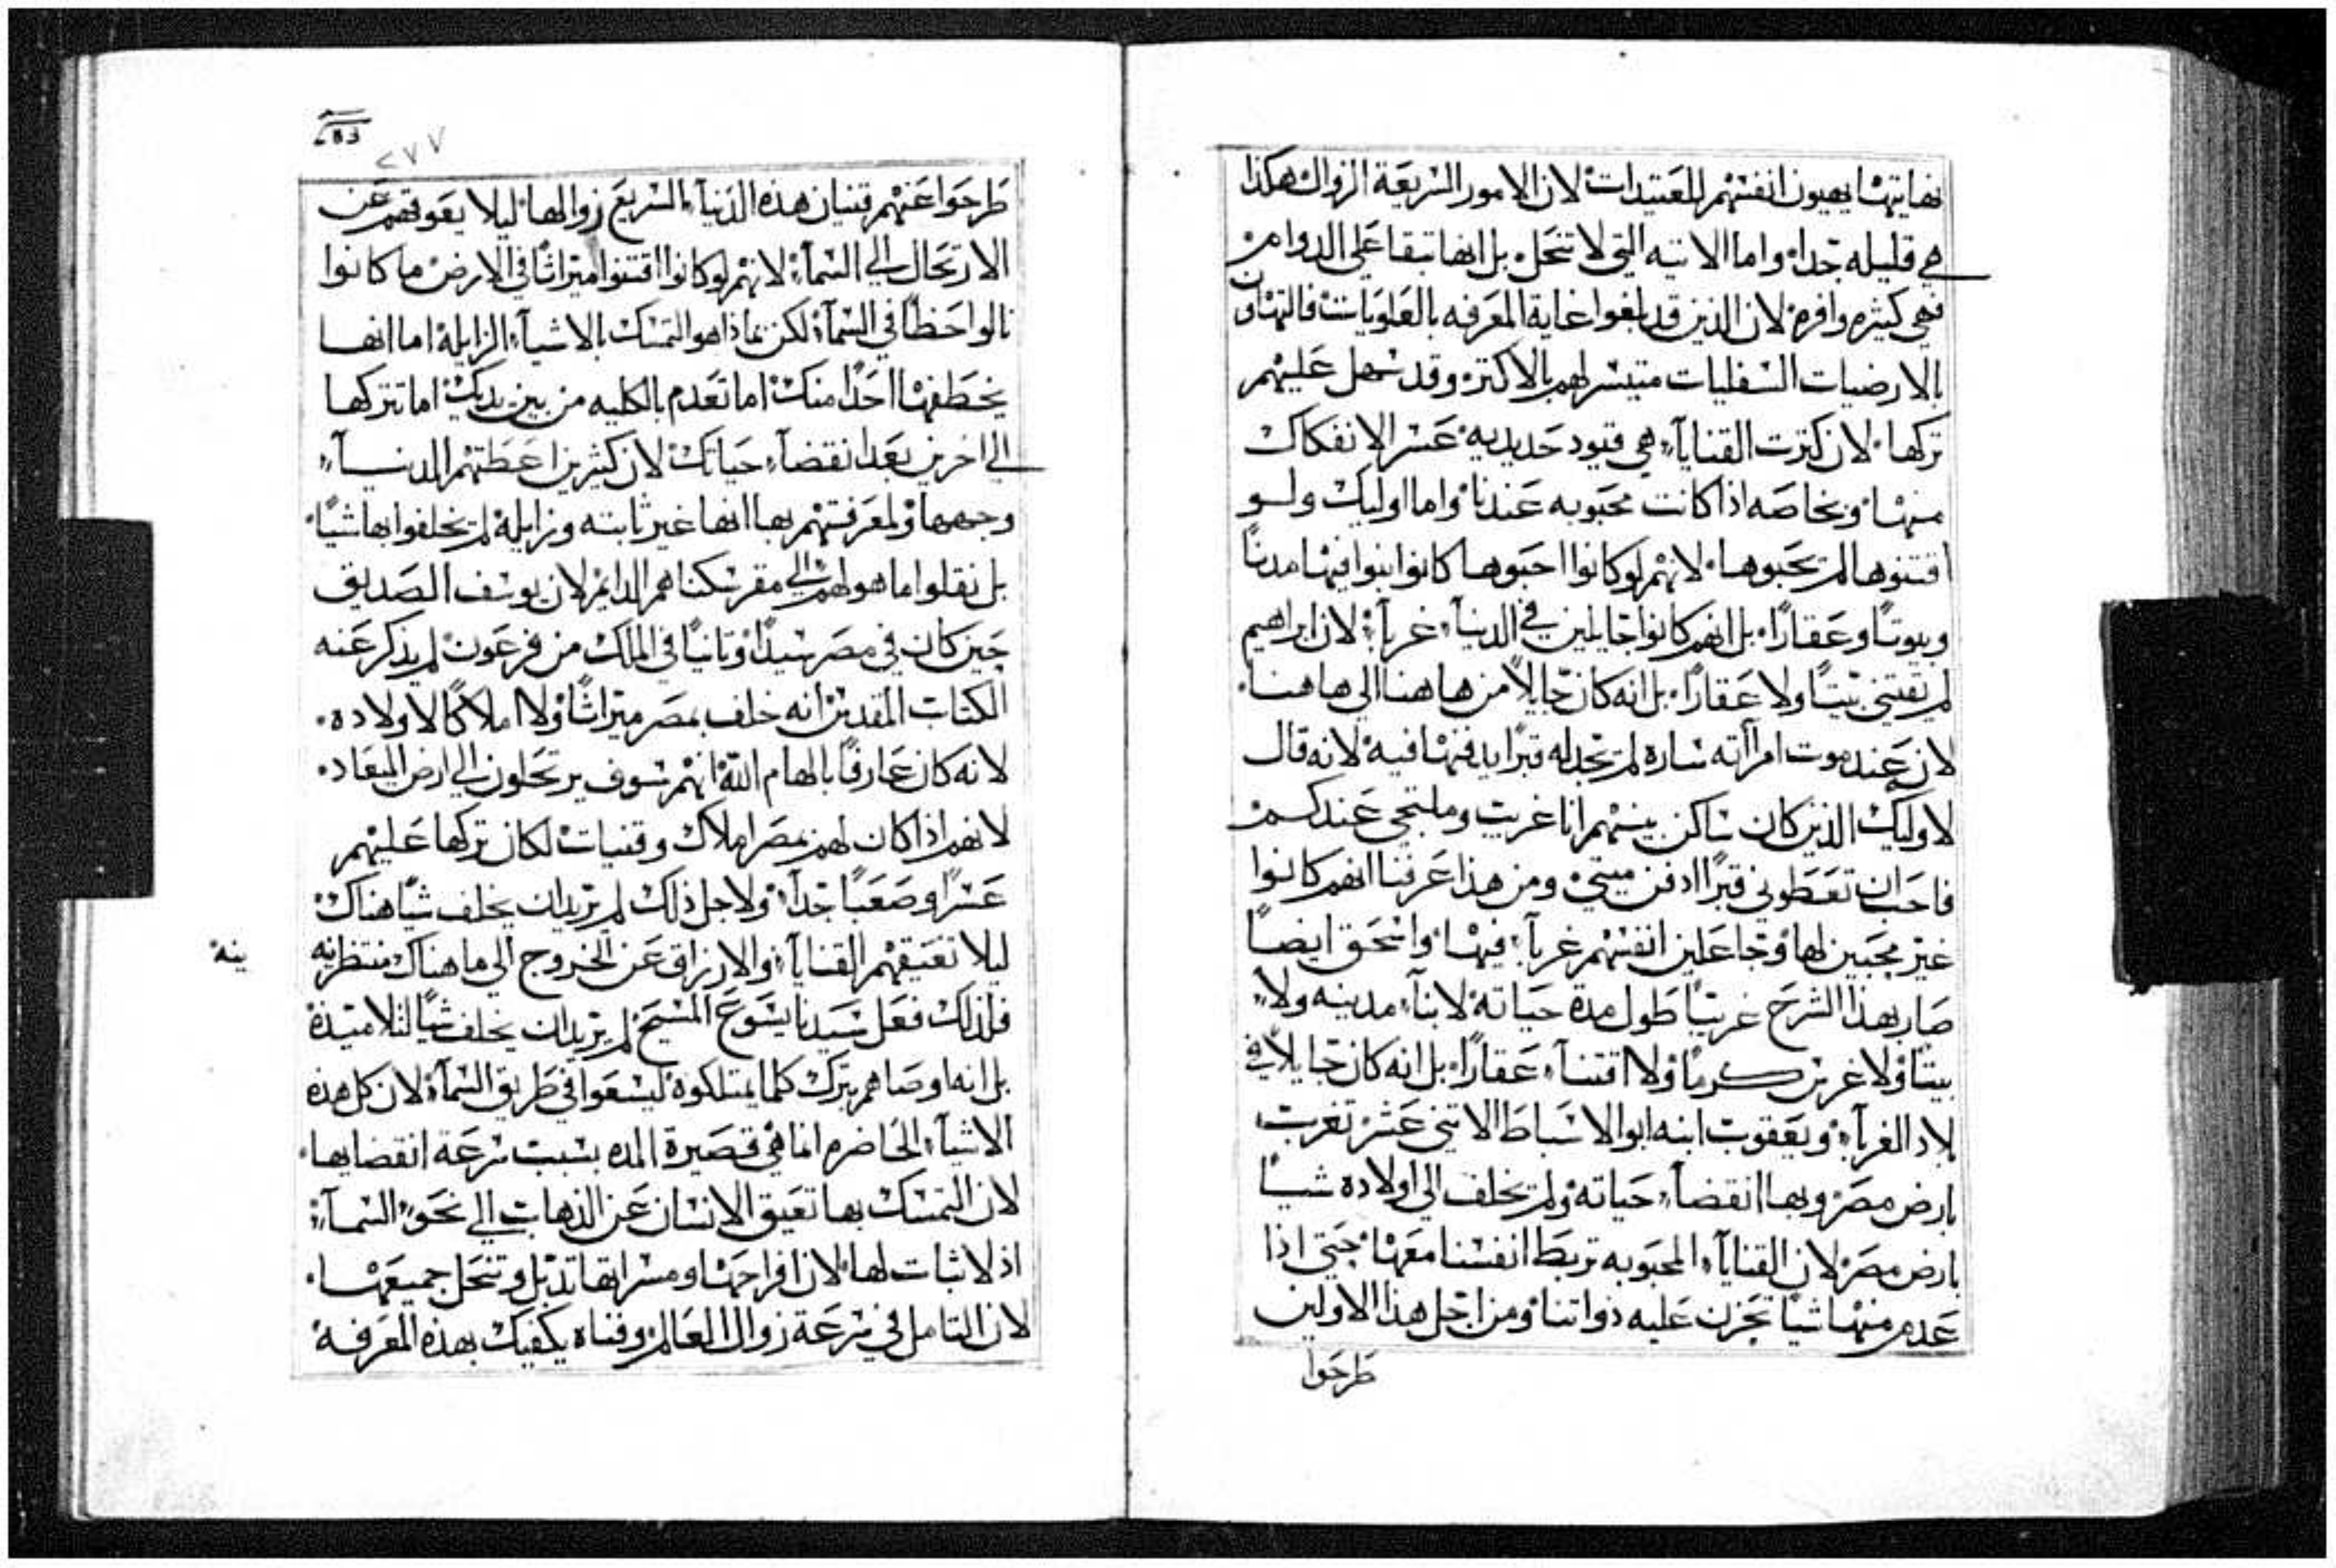 نهايتها يهيون انفسهم للعتيدات لان الامور السريعة الزوال هكذا
هي قليله جدا واما الاتيه التي لا تنحل بل انها تبقا علي الدوام
فهي كثيره وافره لان الذين قد بلغوا غاية المعرفه بالعلويات فالتهاون
بالارضيات السفليات متيسر لهم بالاكتر وقد سهل عليهم
تركها لان كترت القنايآء هي قيود حديديه عسر الانفكاك
منها وبخاصه اذا كانت محبوبه عندنا واما اوليك ولو
اقتنوها لم يحبوها لانهم لو كانوا احبوها كانوا ابنوا فيها مدنًا
وبيوتًا وعقارًا بل انهم كانوا جايلين في الدنيآء غربآء لان ابراهيم
لم يقتني بيتًا ولا عقارًا بل انه كان جايلاً من هاهنا الي هاهنا
لان عند موت امرأته ساره لم تجد له قبرًا يدفنها فيه لانه قال
لاوليك الذين كان ساكن بينهم انا غريب وملتجي عندكم
فاحب ان تعطوني قبرًا ادفن ميتي ومن هذا عرفنا انهم كانوا
غير محبين لها وجاعلين انفسهم غربآء فيها واسحق ايضًا
صار بهذا الشرح غريبًا طول مدة حياته لا بنآء مدينه ولا
بيتًا ولا غرس كرمًا ولا اقتنآء عقارًا بل انه كان جايلاً في
بلاد الغربآء ويعقوب ابنه ابو الاسباط الاتني عشر تغرب
بارض مصر وبها انقضآء حياته ولم يخلف الي اولاده شيًا
بارض مصر لان القنايآء المحبوبه تربط انفسنا معها حتي اذا
عدم منها شيًا تحزن عليه ذواتنا ومن اجل هذا الاولين
طرحوا
٢٧٧
طرحوا عنهم قنيان هذه الدنيآء السريع زوالها ليلا يعوقهم عن
الارتحال الي السمآء لانهم لو كانوا اقتنوا ميراثًا في الارض ما كانوا
نالوا حظًا في السمآء لكن بماذا هو التمسك بالاشيآء الزايلة اما انها
يخطفها احدًا منك اما تعدم بالكليه من بين يديك اما تتركها
الي اخرين بعد انقضآء حياتك لان كثيرين اعطتهم الدنيآء
وجهها ولمعرفتهم بها انها غير ثابته وزايلة لم يخلفوا بها شيًا
بل نقلوا ما هو لهم الي مقر سكناهم الدايم لان يوسف الصديق
حين كان في مصر سيدًا وتانيًا في الملك من فرعون لم يذكر عنه
الكتاب المقدس انه خلف بمصر ميراثًا ولا املاكًا لاولاده
لانه كان عارفًا بالهام الله انهم سوف يرتحلون الي ارض الميعاد
لانهم اذا كان لهم بمصر املاك وقنيات لكان تركها عليهم
عسرًا وصعبًا جدآ ولاجل ذلك لم يريد ان يخلف شيًا هناك
ليلا تعيقهم القنايآء والارزاق عن الخروج الي ما هناك منتظرينه
ينه
فلذلك فعل سيدنا يسوع المسيح لم يريد ان يخلف شيًا لتلاميذة
بل انه اوصاهم بترك كلما يمتلكوه ليسعوا في طريق السمآء لان كل هذه
الاشيآء الحاضره انما هي قصيرة المده بسبب سرعة انقضايها
لان التمسك بها تعيق الانسان عن الذهاب الي نحو السمآء
اذ لا ثبات لها لان افراحها ومسراتها تدبل وتنحل جميعها
لان التامل في سرعة زوال العالم وفناه يكفيك بهذه المعرفة